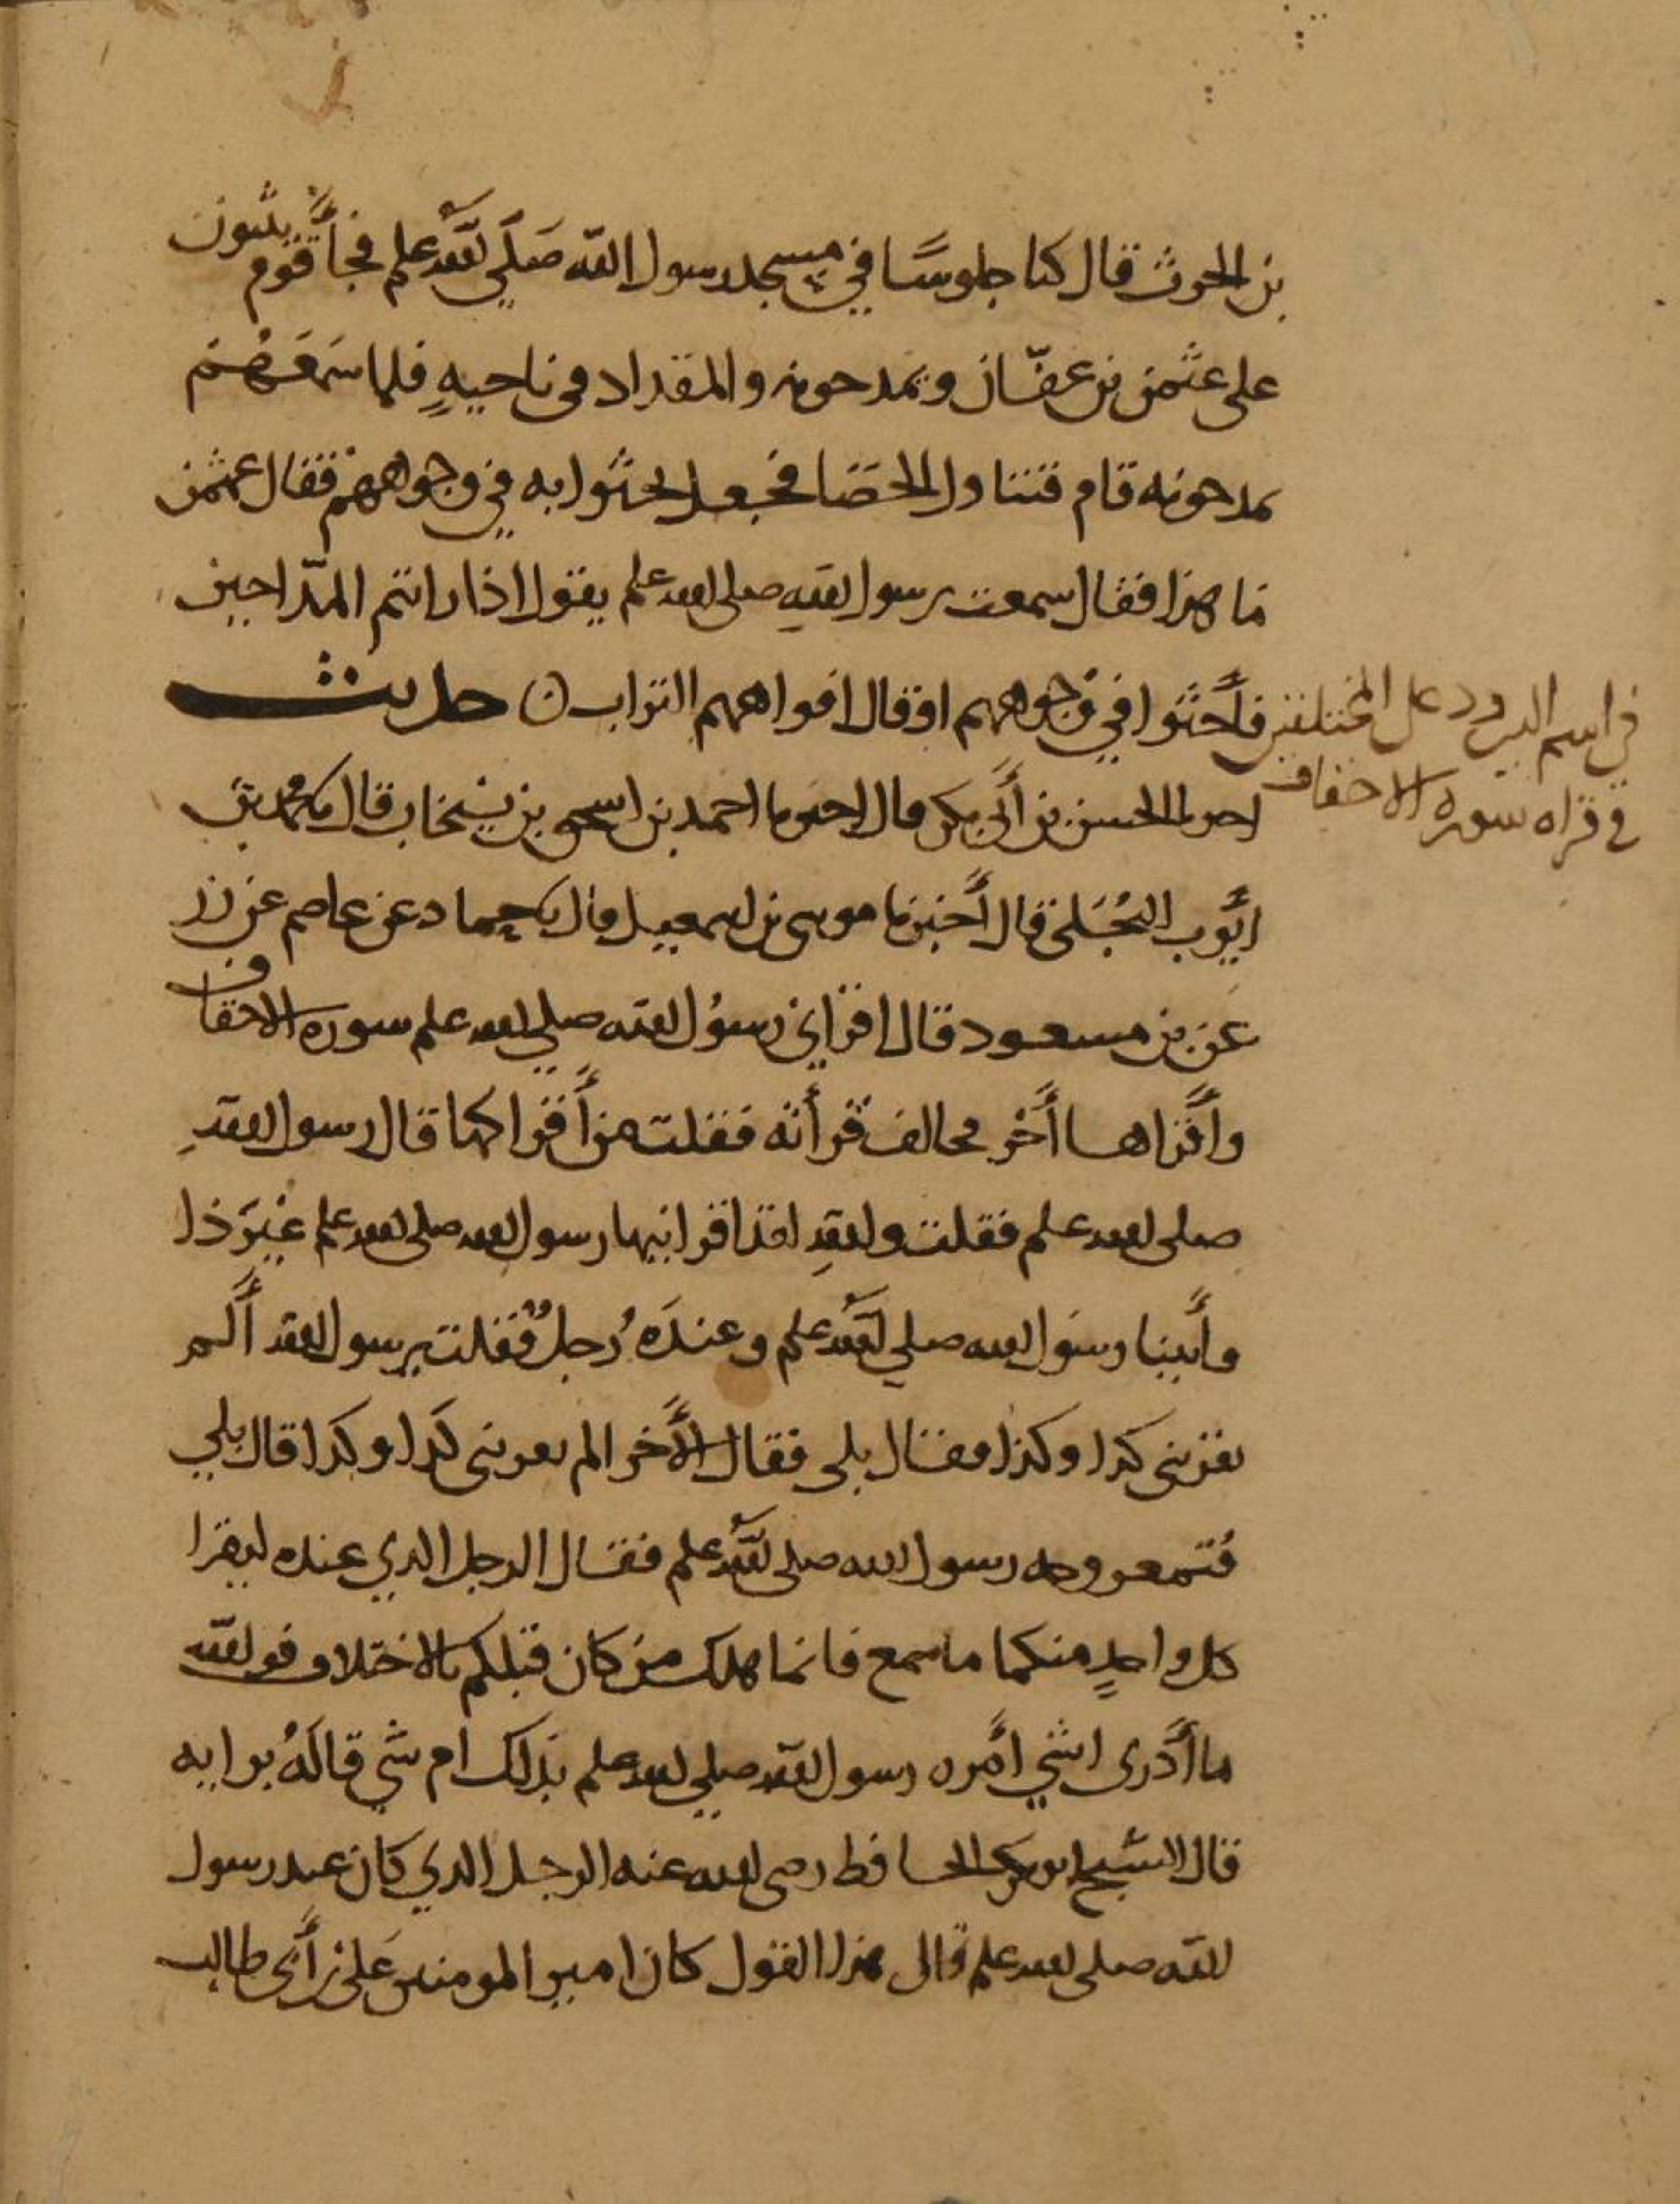 بن الحرث قال كنا جلوسًا في مسجد رسول الله صَلّي الله علم فجأ قوم يثنون
على عثمن بن عفّان ويمدحونه والمقداد في ناحيهٍ فلما سَمعَهُم
يمدحونه قام فتناول الحَصَا فجعل يحثوا به في وجوههم فقال عثمن
مَا هذا فقال سمعت رسول اللهِ صلى الله علم يقول اذا راتتم المدّاحين
فأحثُوا في وُجوههم او قال افواههم التراب ن حديث
في اسم الرد على المختلفين
في قراه سوره الاحقاف
اخبرنا الحسن بن أبي بكر قال اخبرنا احمد بن اسحق بن نيخاب قال نا محمد بن
ايّوب البَجَلي قال أخبرنا موسى بن اسمعيل قال نا حماد عن عاصم عن زر
عَن بن مسعود قال اقراني رسُول الله صلي الله علم سوره الاحقاف
وأقراها أخر مخالف قرأته فقلت من أقراكها قال رسول اللهِ
صلى الله علم فقلت واللهِ لقد اقرانيها رسول الله صلى الله علم غيرَ ذا
وأتينا رسَول الله صلي الله علم وعندَه رُجلٌ فقلت يرسول الله ألم
تقرني كذا وكذا فقال بلى فقال الأخر الم تقرني كذا وكذا قال بلي
فتمعر وجه رسول الله صلى الله علم فقال الرجل الذي عنده ليقرا
كل واحدٍ منكما ما سمع فانما هلك من كان قبلكم بالاختلاف فو الله
ما أدرى اشي أمره رسول الله صلي الله علم بذلك ام شي قالَهُ برايه
قال الشيخ ابو بكر الحافظ رضى الله عنه الرجل الذي كان عند رسول
الله صلى الله علم قال هذا القول كان امير المومنين عَلي بن أبي طالب